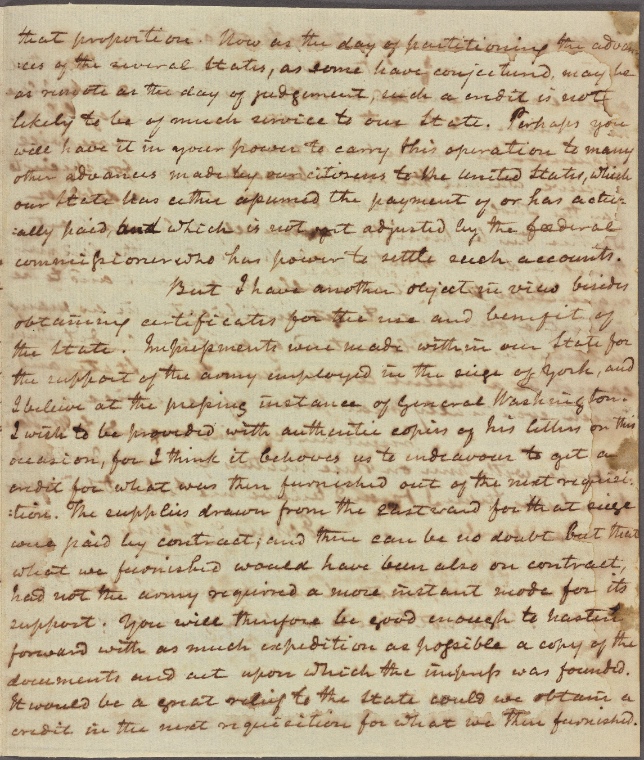 that proportion. Now as the day of partitioning the advan
:ces of the several States, as some have conjectured, may be
as remote as the day of judgement, such a credit is not
likely to be of much service to our State. Perhaps you
will have it in your power to carry this operation to many
other advances made by our citizens to the United States, which
our State has either assumed the payment of or has actu:
:ally paid, and which is not yet adjusted by the fœderal
commissioner who has power to settle such accounts.
But I have another object in view besides
obtaining certificates for the use and benefit of
the State. Impressments were made within our State for
the support of the army employed in the siege of York, and
I believe at the pressing instance of General Washington.
I wish to be provided with authentic copies of his letters on this
occasion, for I think it behoves us to endeavour to get a
credit for what was then furnished out of the next requisi:
:tion. The supplies drawn from the Eastward for that siege
were paid by contract; and there can be no doubt but that
what we furnished would have been also on contract,
had not the army required a more instant mode for its
support. You will therefore be good enough to hasten
forward with as much expedition as possible a copy of the
documents and act upon which the impress was founded.
It would be a great relief to the State could we obtain a
credit in the next requisition for what we then furnished.